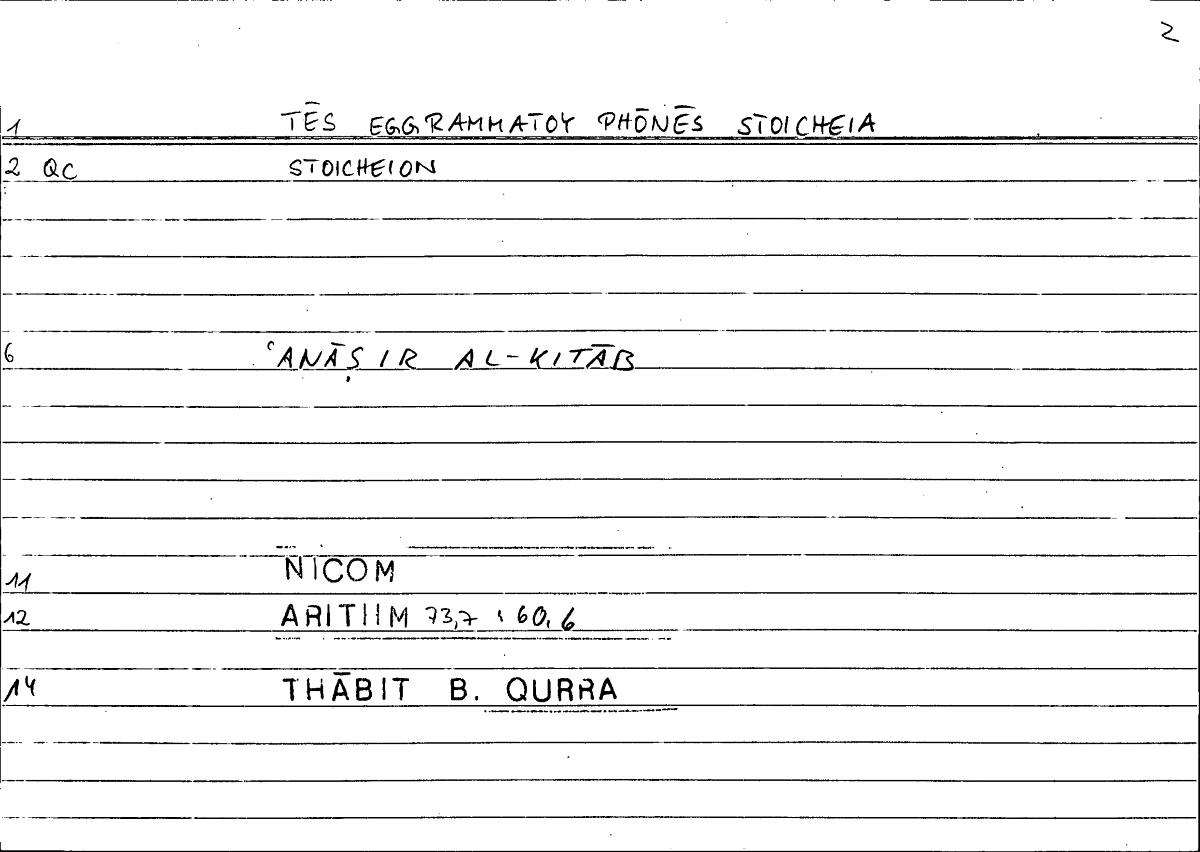 2
1 TĒS EGGRAMMATOY PHŌNĒS STOICHEIA
2 QC STOICHEION
6 ʿANĀṢIR AL-KITĀB
11 NICOM
12 ARITHM 73,7 ; 60,6
14 THĀBIT B. QURRA